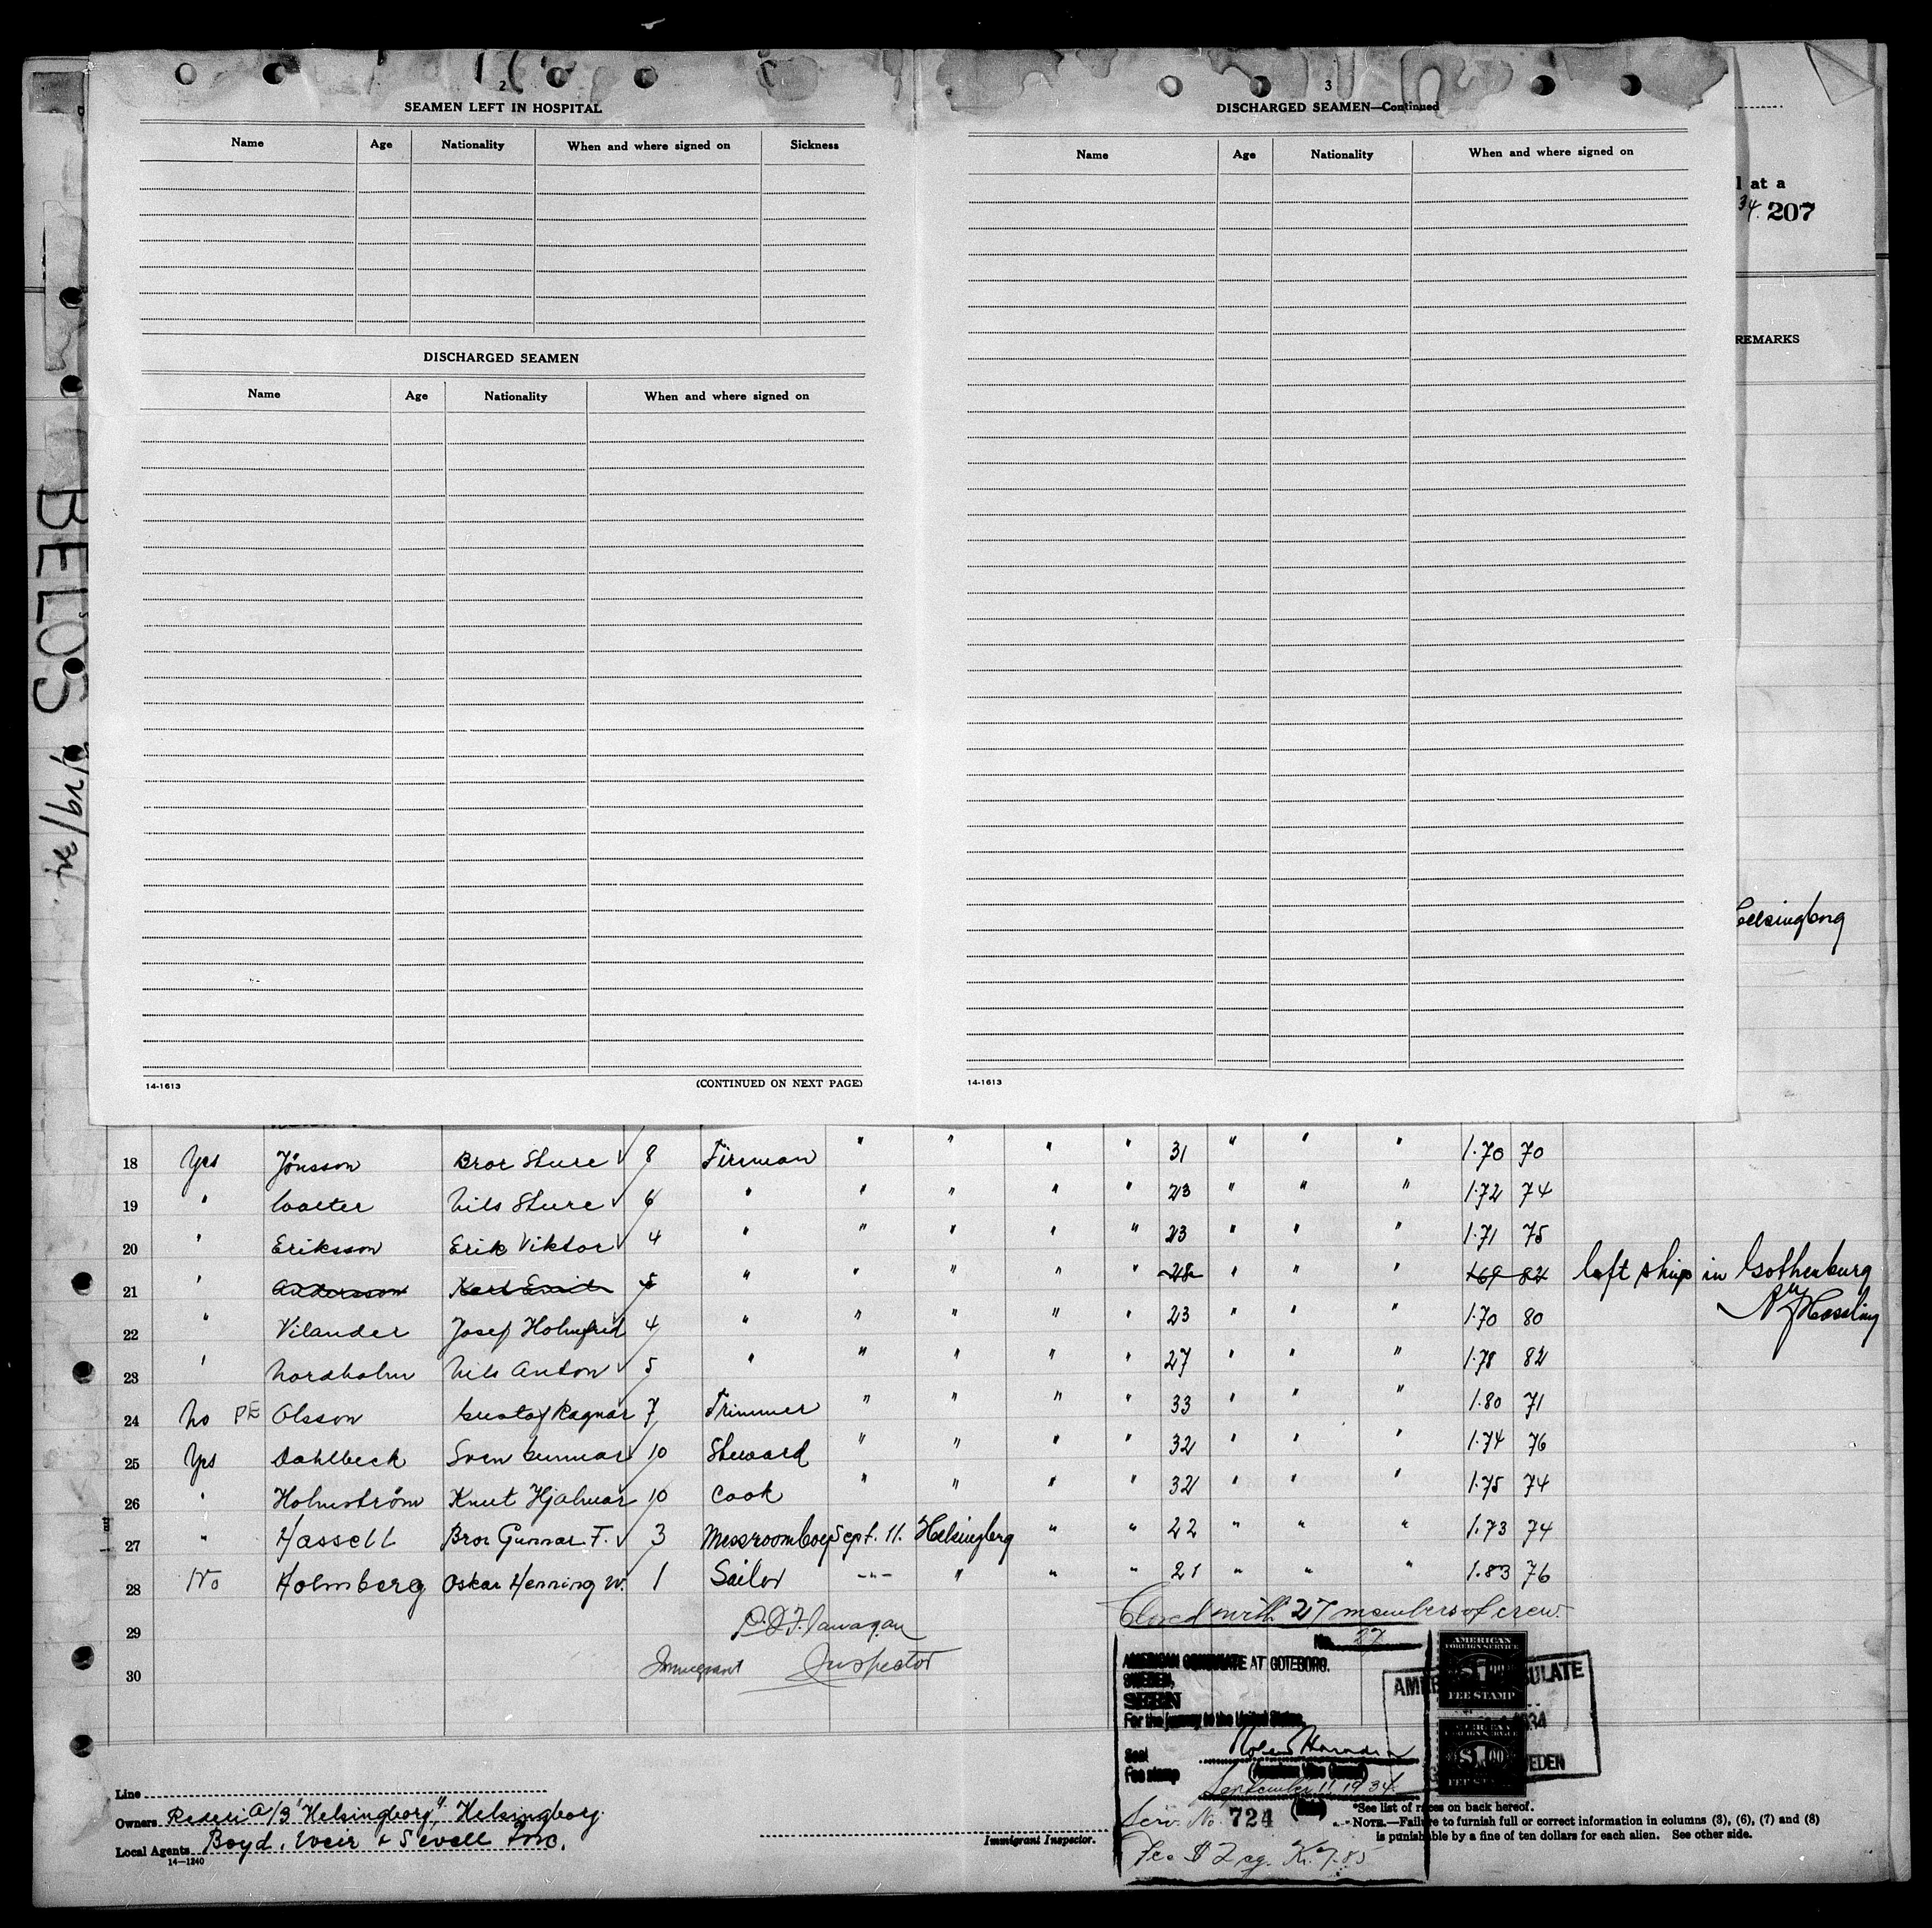 2
SEAMEN LEFT IN HOSPITAL
Name Age Nationality When and where signed on Sickness
DISCHARGED SEAMEN
Name Age Nationality When and where signed on
14-1613 (CONTINUED ON NEXT PAGE)
3
DISCHARGED SEAMEN—Continued
Name Age Nationality When and where signed on
14-1613
l at a
34. 207
REMARKS
elsingborg
BELOS 9/29/34.
18 Yes Jönsson Bror Sture √ 8 Fireman " " " " 31 " " " 1.70 70
19 " Walter Nils Sture √ 6 " " " " " 23 " " " 1.72 74
20 " Eriksson Erik Viktor √ 4 " " " " " 23 " " " 1.71 75
21 " Andersson Karl Emil 5 " " " " " 28 " " " 1.69 82 left ship in Gothenburg
22 " Vilander Josef Holmfrid 4 " " " " " 23 " " " 1.70 80
23 " Nordholm Nils Anton √ 5 " " " " " 27 " " " 1.78 82
24 No PE Olsson Gustaf Ragnar 7 Trimmer " " " " 33 " " " 1.80 71
25 Yes Dahlbeck Sven Gunnar √ 10 Steward " " " " 32 " " " 1.74 76
26 " Holmström Knut Hjalmar 10 Cook " " " " 32 " " " 1.75 74
27 " Hassell Bror Gunnar F. √ 3 Messroomboy Sept. 11. Helsingborg " " 22 " " " 1.73 74
28 No Holmberg Oskar Henning W. 1 Sailor -"- " " " 21 " " " 1.83 76
29 Closed with 27 members of crew.
P. D. Flanagan
30 Immigrant Inspector
No. 27
AMERICAN CONSULATE AT GOTEBORG,
SWEDEN,
SEEN
For the journey to the United States.
Seal
Fee stamp (American Vice Consul)
September 11, 1934
(Date)
Serv. No. 724
Fee $2 eq. Kr. 7.85
AMERICAN
FOREIGN SERVICE
$1.00
FEE STAMP
$1.00
FEE STAMP
Line
Owners Rederi A/B "Helsingborg", Helsingborg.
Local Agents Boyd, Weir & Sewell Inc.
14—1240
Immigrant Inspector.
*See list of races on back hereof.
NOTE.—Failure to furnish full or correct information in columns (3), (6), (7) and (8)
is punishable by a fine of ten dollars for each alien. See other side.